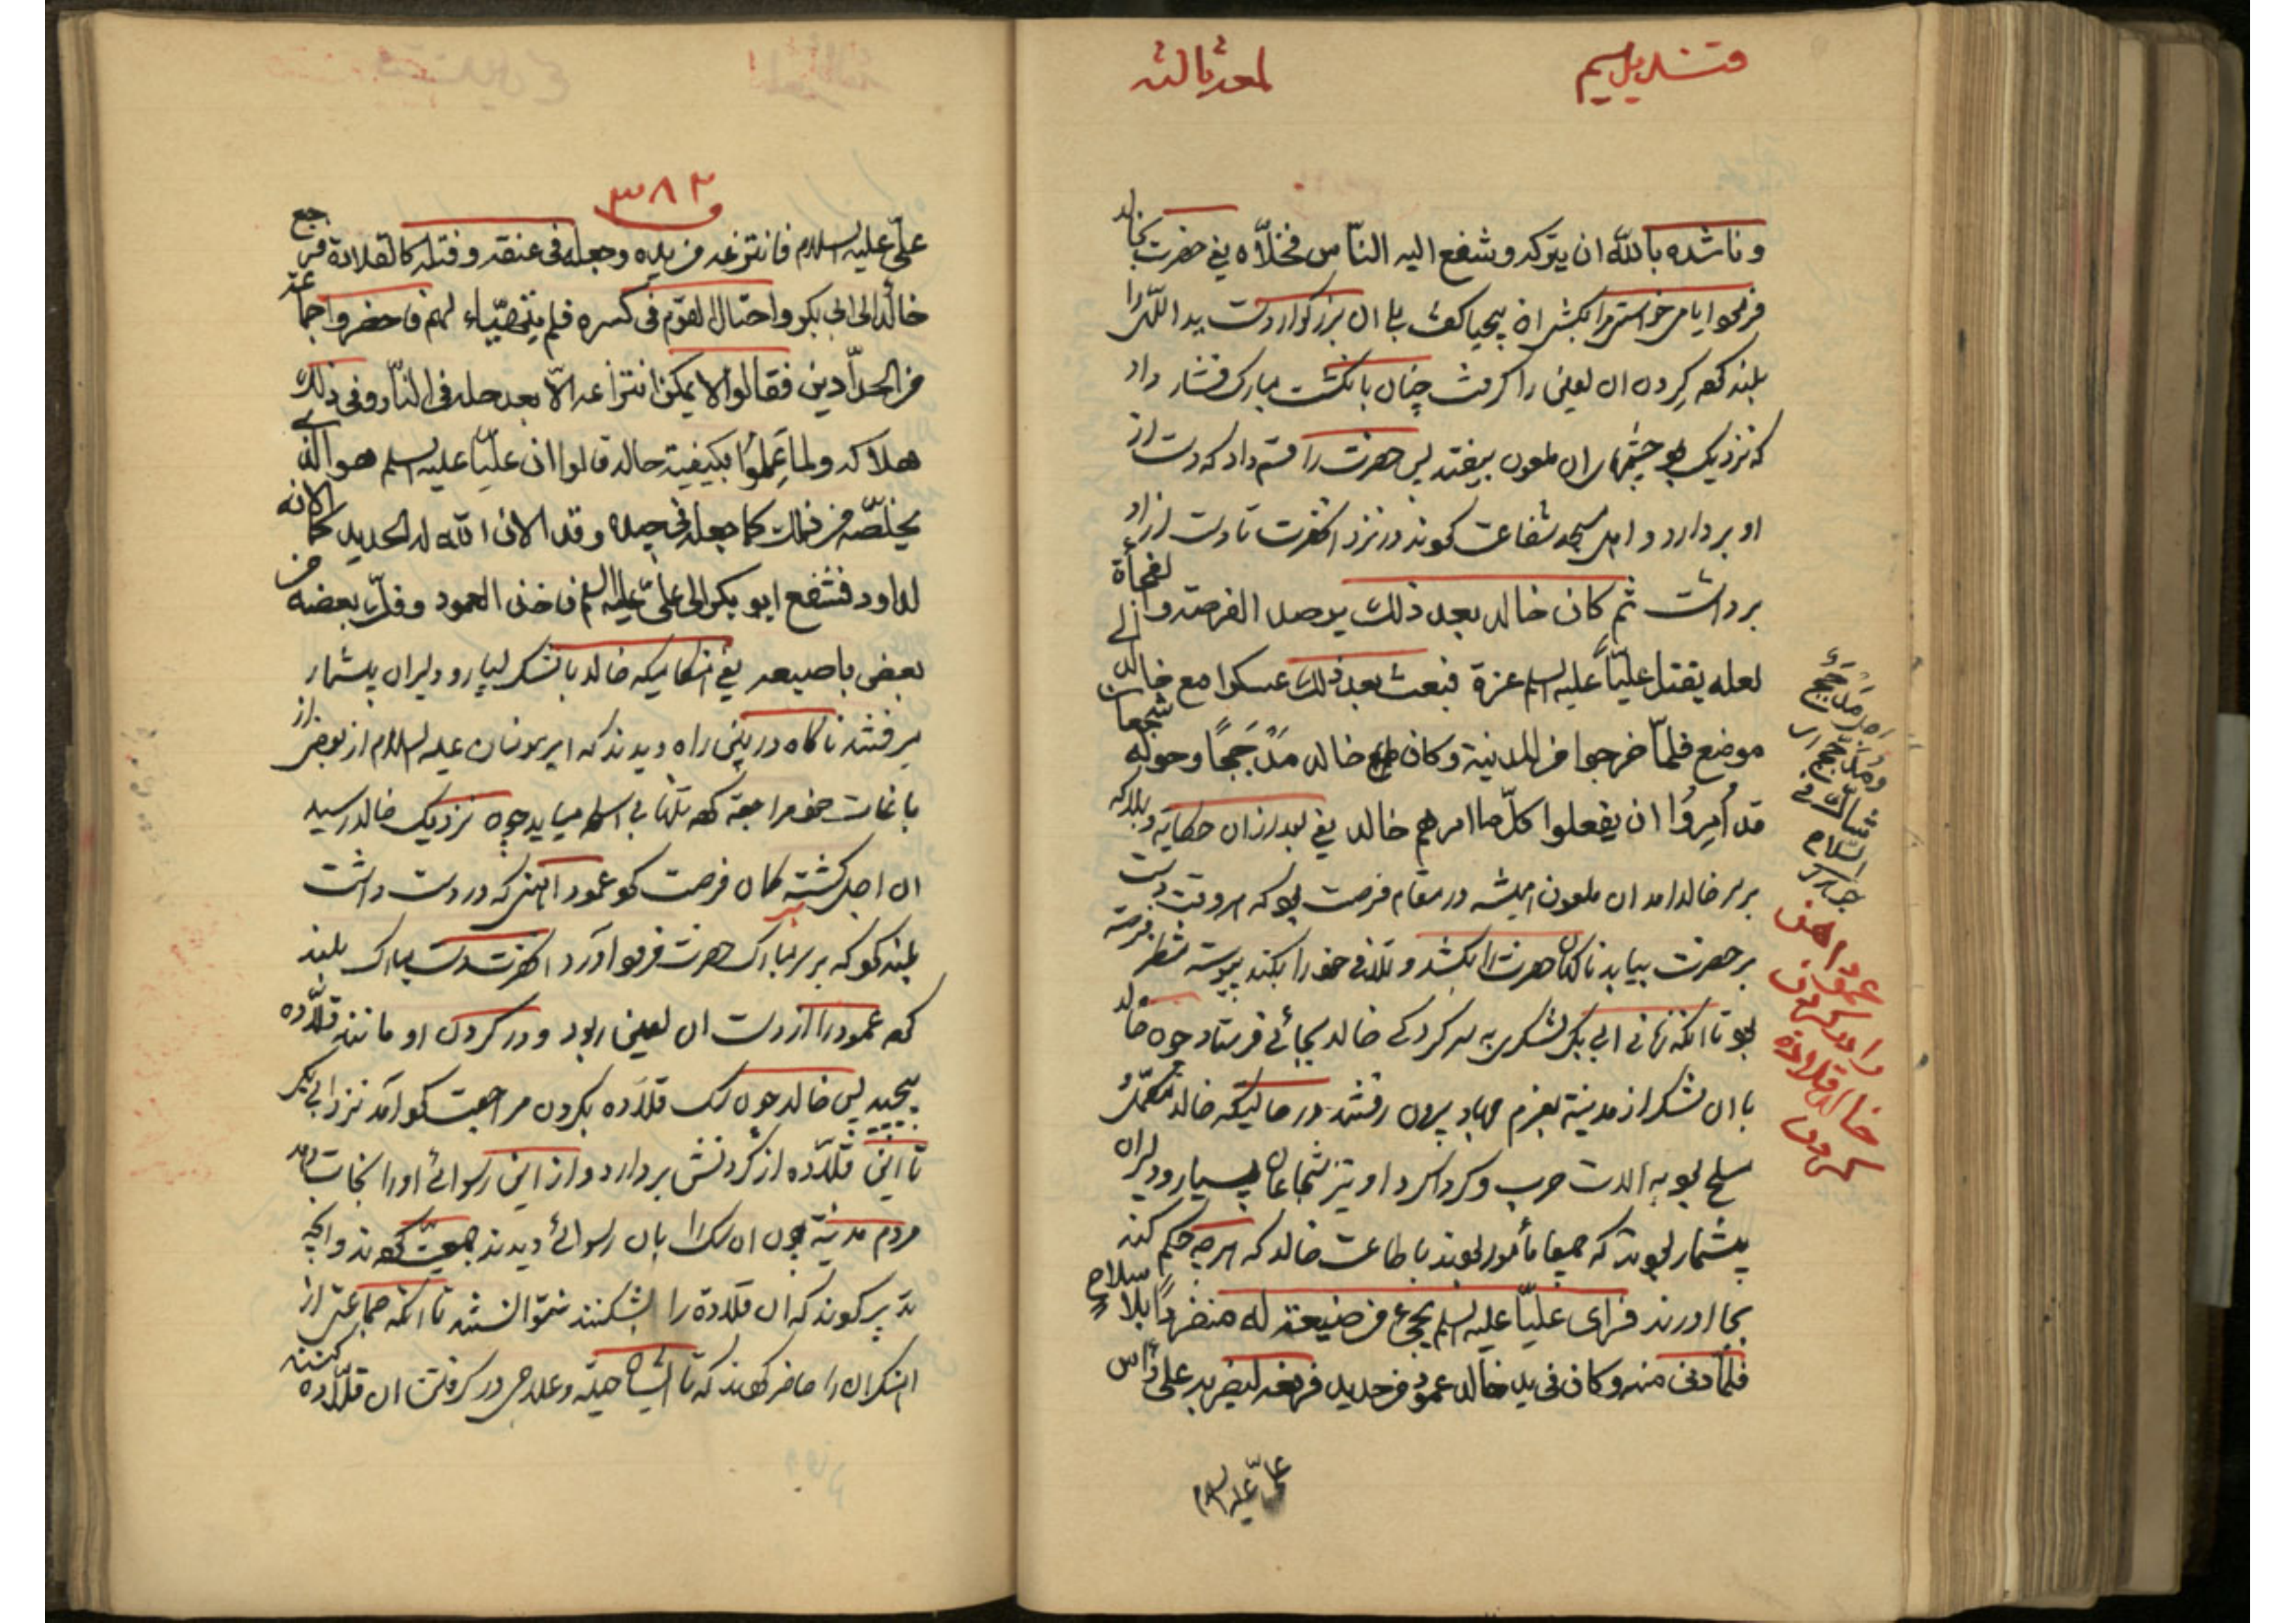 قندیل سیم
لمعه ثالثه
و ناشده بالله ان یترکه و شفع الیه الناس فخلّاه یعنی حضرت بخالد
بلند کرد گردن ان لعین را گرفت چنان بانگشت مبارک فشار داد
که نزدیک بود چشمهای ان ملعون بیفتد پس حضرت را قسم داد که دست از
او بردارد و اهل مسجد شفاعت کردند در نزد انحضرت تا دست از او
برداشت ثم کان خالد بعد ذلک یرصد الفرصة و الفجأة
لعله یقتل علیّاً علیه السلم غرة فبعث بعد ذلک عسکرا مع خالد الی
موضع فلمّا خرجوا من المدینة و کان خالد مدجّجاً و حوله شجعان
قد اُمِرُوا ان یفعلوا کلّ ما امرهم خالد یعنی بعد از ان حکایة و بلا که
بر سر خالد امد ان ملعون همیشه در مقام فرصت بود که هر وقت دست
بر حضرت بیابد ناگاه حضرت را بکشد و تلافی خود را بکند پیوسته منتظر فرصة
بود تا انکه زمانی ابی بکر لشکری به سرکردگی خالد بجائی فرستاد چون خالد
با ان لشکر از مدینة بعزم جهاد بیرون رفتند در حالیکه خالد مکمّل
مسلح بود به الات حرب و کرداکرد او نیز شجاعان بسیار و دلیران
بیشمار بودند که جمیعا مأمور بودند باطاعت خالد که هر چه حکم کند
بجا اورند فرای علیّا علیه السلم یجیء من ضیعة له منفرداً بلا سلاحٍ
فلمّا دنی منه و کان فی ید خالد عمود من حدید فرفعه لیضربه علی رأس
علیّ علیه السلام
عمود اهن
را در گردن
خالد قلاده
کردن
٣٨٢
علیّ علیه السلام فانتزعه من یده و جعله فی عنقه و فتله کالقلادة فرجع
خالد الی ابی بکر و احتال القوم فی کسره فلم یتهیّاء لهم فاحضروا جماعة
من الحدّادین فقالوا لا یمکن انتزاعه الّا بعد حله فی النّار و فی ذلک
هلاکه و لما عَلِمُوا بکیفیة حاله قالوا ان علیّا علیه السلم هو الذی
یخلّصه من ذلک کما جعله فی جیده و قد الان الله له الحدید کما الانه
لداود فشفع ابو بکر الی علیّ علیه السلم فاخذ العمود و فکّ بعضه من
بعض باصبعه یعنی هنگامیکه خالد با لشکر بسیار و دلیران بیشمار
میرفتند ناگاه در بین راه دیدند که امیرمؤمنان علیه السلام از بعضی از
باغات خود مراجعة کرده تنها بی اسلحه میاید چون نزدیک خالد رسید
ان اجل گشته گمان فرصت کرد عمود اهنی که در دست داشت
بلند کرد که بر سر مبارک حضرت فرود آورد انحضرت دست مبارک بلند
کرد عمود را از دست ان لعین ربود و در گردن او مانند قلّاده
پیچید پس خالد چون سگ قلّاده بگردن مراجعت کرد آمد نزد ابی بکر
تا این قلّاده از گردنش بردارد و از این رسوائی او را نجات دهد
مردم مدینة چون ان سگ را بان رسوائی دیدند جمعیّت کردند و انچه
تدبیر کردند که ان قلّادة را بشکنند نتوانستند تا انکه جماعتی از
اهنگران را حاضر کردند که تا ایشان حیله و علاجی در گرفتن ان قلّاده کنند